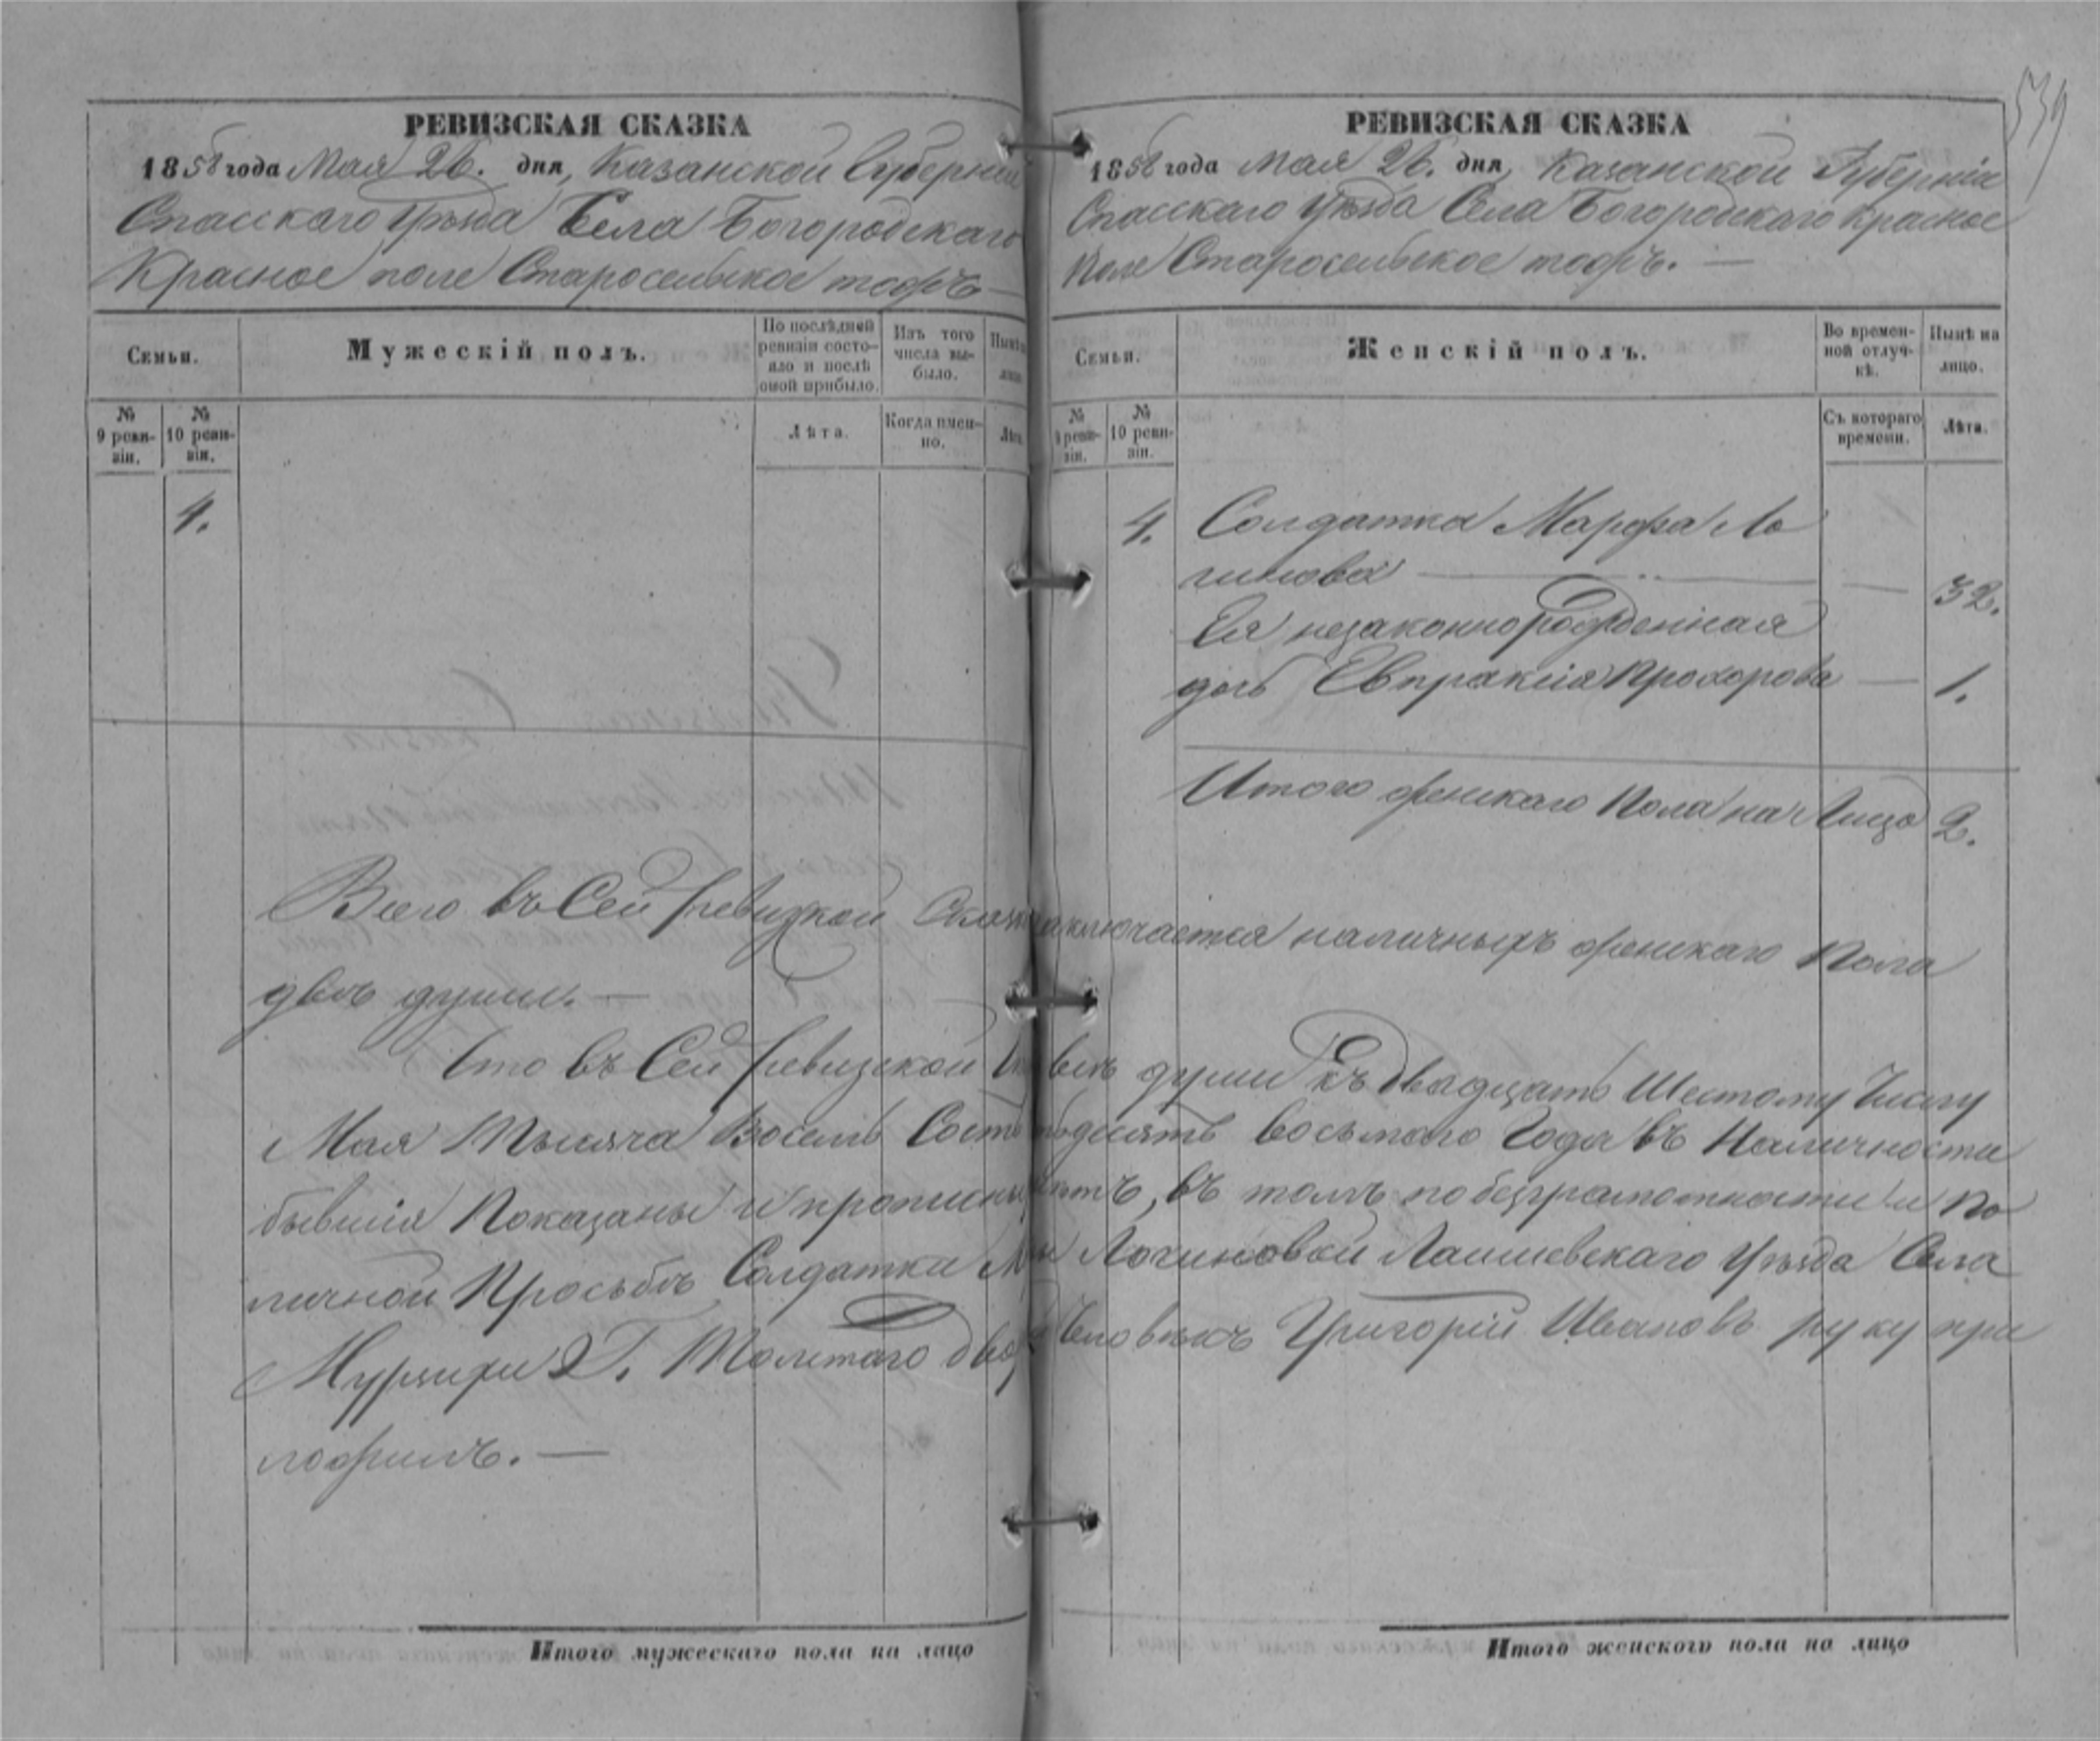 539
РЕВИЗСКАЯ СКАЗКА
1858 года Мая 26. дня, Казанской Губерніи
Спасскаго Уѣзда Села Богородскаго
Красное поле Старосельское тожъ
Семьи.
Мужескій полъ.
По послѣдней ревизіи состояло и послѣ оной прибыло.
Изъ того числа выбыло.
Нынѣ
№ 9 ревизіи.
№ 10 ревизіи.
Лѣта.
Когда именно.
Лѣта
4.
РЕВИЗСКАЯ СКАЗКА
1858 года Мая 26. дня, Казанской Губерніи
Спасскаго Уѣзда Села Богородскаго Красное
Поле Старосельское тожъ.
Семьи.
Женскій полъ.
Во временной отлучкѣ.
Нынѣ на лицо.
№ 9 ревизіи.
№ 10 ревизіи.
Съ котораго времени.
Лѣта.
4. Солдатка Марфа Ло
гинова 32.
Ея незаконнорожденная
дочь Евпраксія Прохорова 1.
Итого женскаго Пола на Лицо 2.
Всего въ Сей Ревизской Сказкѣ заключается наличныхъ женскаго Пола
двѣ души.
Что въ Сей Ревизской всѣ души къ двадцать Шестому Числу
Мая Тысяча Восемь Сотъ пятьдесятъ восьмаго Года въ Наличности
бывшія Показаны и прописны нѣтъ, въ томъ по безграмотности и по
личной Просьбѣ Солдатки Логиновой Лаишевскаго Уѣзда Села
Мурзихи Г. Толстаго двор Человѣкъ Григорій Ивановъ руку при
ложилъ.
Итого мужескаго пола на лицо
Итого женского пола на лицо